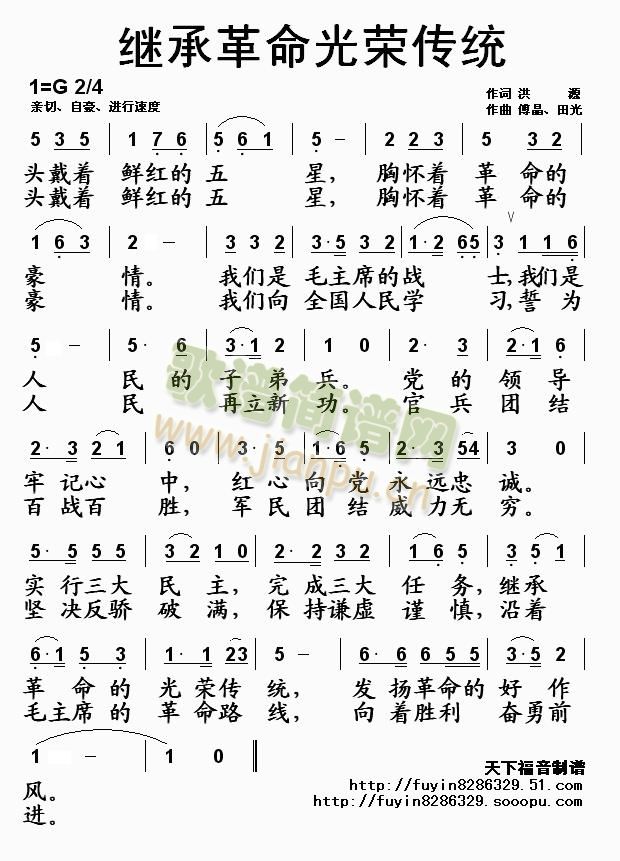 继承革命光荣传统
1=G 2/4
亲切、自豪、进行速度
作词 洪 源
作曲 傅晶、田光
5 3 5 | 1 7 6 | 5 6 1 | 5 - | 2 2 3 | 5 3 2 |
头戴着 鲜红的 五 星, 胸怀着 革 命的
头戴着 鲜红的 五 星, 胸怀着 革 命的
1 6 3 | 2 - | 3 3 2 | 3·5 3 2 | 1·2 6 5 | 3 1 1 6 |
豪 情。 我们是 毛主席的战 士,我们是
豪 情。 我们向 全国人民学 习,誓为
5 - | 5· 6 | 3·1 2 | 1 0 | 2· 3 | 2·1 6 |
人 民 的 子 弟 兵。 党 的 领 导
人 民 再立新 功。 官 兵 团 结
2· 3 2 1 | 6 0 | 3· 5 | 1·6 5 | 2· 3 54 | 3 0 |
牢 记心 中, 红 心 向 党 永 远忠 诚。
百 战百 胜, 军 民 团 结 威 力无 穷。
5· 5 3 5 | 3 2 1 0 | 2· 2 3 2 | 1 6 5 | 3 5 1 |
实 行三大 民 主, 完 成三大 任 务,继承
坚 决反骄 破 满, 保 持谦虚 谨 慎,沿着
6·1 5 3 | 1· 1 23 | 5 - | 6· 6 | 6 6 5 5 | 3·5 2 |
革 命 的 光 荣传 统, 发 扬革命的 好 作
毛主席 的 革 命路 线, 向 着胜利 奋勇前
1 - | 1 0 ‖
风。
进。
天下福音制谱
http://fuyin8286329.51.com/
http://fuyin8286329.sooopu.com/
歌谱简谱网
www.jianpu.cn